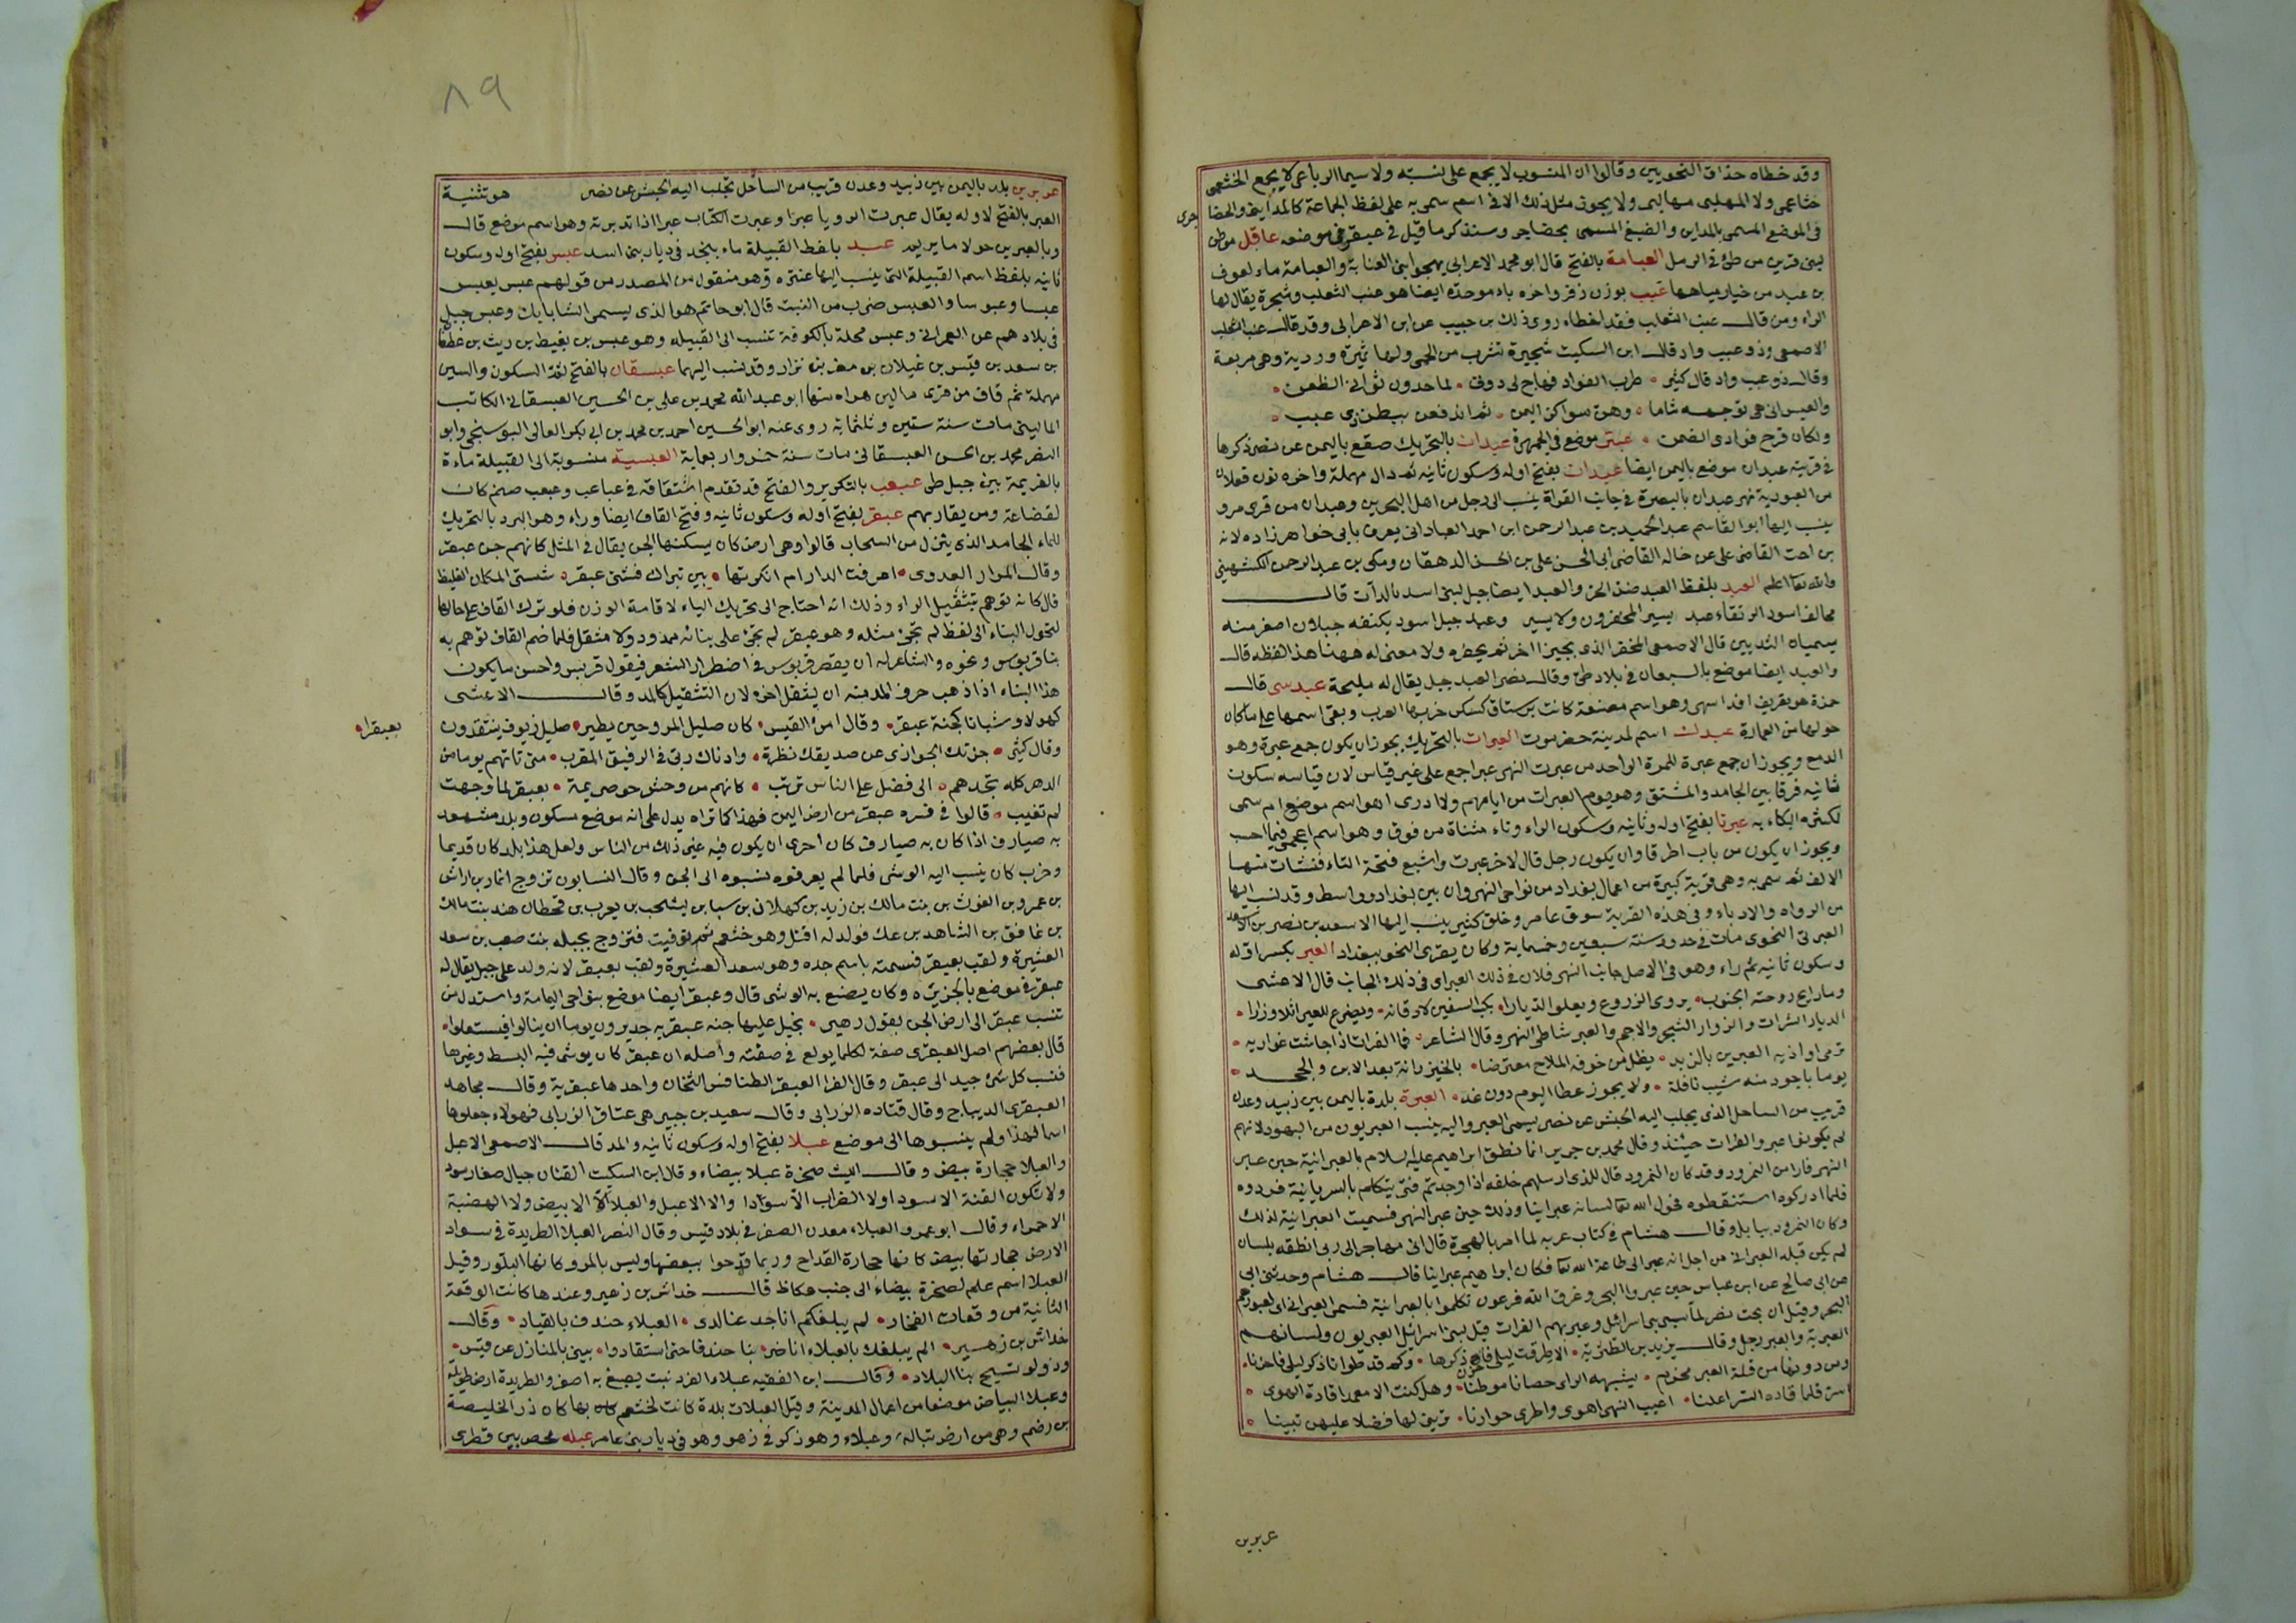 وقد خطاه حذاق النحويين وقالوا ان المنسوب لا يجمع على نسبته ولا سيما الرباعى لا يجمع الخثعمى
خثاعمى ولا المهلبى مهالبى ولا يجوز مثل ذلك الا فى اسم سمى به على لفظ الجماعة كالمداينى والحضا
جرى
فى الموضع المسمى بالمداين والضبع المسمى بحضاجر وسنذكر ما قيل فى عبقرى فى موضعه عاقل موطن
لبنى فرير من طئ فى الرمل العبامة بالفتح قال ابو محمد الاعرابى يهجو ابنى العنابة والعبامة ماء لعوف
بن عبد من خيار مياهها عبب بوزن زفر واخره باء موحدة ايضا هو عنب الثعلب وشجرة يقال لها
الراء ومن قال عنب الثعلب فقد اخطاء روى ذلك بن حبيب عن ابن الاعرابى وقد قال عنب الثعلب
الاصمعى وذو عبب واد قال ابن السكيت شجيرة تشرب من الحمى ولها ثمرة وردية وهى مربعة
وقال ذو عبب واد قال كثير • طرب الفواد فهاج لى ددنى • لما حدون ثوانى الظعن •
والعيس انى هى توجهه شاما • وهن سواكن اليمن • ثم اندفعن ببطن ذى عبب •
ونكان قرح فوادى الضمن • عبتر موضع فى الجمهرة عبدات بالتحريك صقع باليمن عن نصر ذكرها
فى قرينه عبدان موضع باليمن ايضا عبدان بفتح اوله وسكون ثانيه ثم دال مهملة واخره نون فعلان
من العبودية نهر عبدان بالبصرة فى جانب الفراة ينسب الى رجل من اهل البحرين وعبدان من قرى مرو
ينسب اليها ابو القاسم عبد الحميد بن عبد الرحمن ابن احمد العبادانى يعرف بابى خواهرزاده لانه
بن اخت القاضى على عن خاله القاضى ابى الحسن على بن الحسن الدهقان ومكى بن عبد الرحمن الكشمهينى
والله تعا اعلم العبد بلفظ العبد ضد الحر والعبد ايضا جبل لبنى اسد بالدآت قال
محالف اسود الرنقاء عبد يسير المخفرون ولا يسير وعبد جبل اسود يكتنفه جبلان اصغر منه
يسميان الثديين قال الاصمعى المخفر الذى يجيز اخر ثم يخفره ولا معنى له ههنا هذا لفظه قال
والعبد ايضا موضع بالسبعان فى بلاد طئ وقال نصر العبد جبل يقال له مليحة عبدسى قال
حمزة هو تعريف افداسهى وهو اسم مصنعة كانت برستاق كسكر خربها العرب وبقى اسمها على ما كان
حولها من العمارة عبدل اسم لمدينة حضرموت العبرات بالتحريك يجوز ان يكون جمع عبرة وهو
الدمع ويجوز ان جمع عبرة للمرة الواحد من عبرت النهر عبرا جمع على غير قياس لان قياسه سكون
ثانيه فرقا بين الجامد والمشتق وهو يوم العبرات من ايامهم ولا ادرى اهو اسم موضع ام سمى
لكثرة البكاء به عبرتا بفتح اوله وثانيه وسكون الراء وتاء مثناة من فوق وهو اسم اعجمى فيما احسب
ويجوز ان يكون من باب اطرقا وان يكون رجل قال لاخر عبرت واشبع فتحة التاء فنشات منها
الالف ثم سمى به وهى قرية كبيرة من اعمال بغداد من نواحى النهروان بين بغداد وواسط وقد نسب اليها
من الرواه والادباء وفى هذه القرية سوق عامر وخلق كثير ينسب اليها الاسعد بن نصر بن الاسعد
العبرتى النحوى مات فى حدود سنه سبعين وخمسماية وكان يقرى النحو ببغداد العبر بكسر اوله
وسكون ثانيه ثم راء وهو فى الاصل جانب النهر فلان فى ذلك العبر اى فى ذلك الجانب قال الاعشى
وما رايح روحته الجنوب • يروى الزروع ويعلوا الديارا • يكب السفين لاذقانه • ويصرع للعبر اثلا وزارا •
الديار الشرات والزوار الشجر والاجم والعبر شاطى النهر وقال الشاعر • فما الفرات اذا جاشت غواربه •
ترمى اواذيه العبرين بالزبد • يظل من خوفه الملاح معترضا • بالخيزرانة بعد الاين والنجد •
يوما باجود منه سيب نافلة • ولا يجوز عطا اليوم دون غد • العبرة بلدة باليمن بين زبيد وعدن
قريب من الساحل الذى يجلب اليه الحبش عن نصر يسمى العبر واليه ينسب العبريون من اليهود لانهم
لم يكونوا عبروا الفرات حينئذ وقال محمد بن جرير انما نطق ابراهيم عليه السلام بالعبرانية حين عبر
النهر فارا من النمرود وقد كان النمرود قال للذى ارسلهم خلفه اذا وجدتم فتى يتكلم بالسريانية فردوه
فلما ادركوه استنقطوه فحول الله تعا لسانه عبرانيا وذلك حين عبر النهر فسميت العبرانية لذلك
وكان النمرود ببابل وقال هشام فى كتاب عربه لما امر بالهجرة قال انى مهاجر الى ربى انطقه بلسان
لم يكن قبله العبرانى من اجل انه عبر الى طاعة الله تعا فكان ابراهيم عبرانيا قال هشام وحدثنى ابى
عن ابى صالح عن ابن عباس حين عبروا البحر وغرق الله فرعون تكلموا بالعبرانية فسمى العبرانى لعبورهم
البحر وقيل ان بخت نصر لما سبى بنى اسرائيل وعبر بهم الفرات قيل لبنى اسرائيل العبريون ولسانهم
العبرية والعبر رجل وقال يزيد بن الطثرية • الا طرقت ليلى فاحزن ذكرها • وكم قد طوانا ذكر ليلى فاحزنا •
ومن دونها من قلة العبر مخرم • يشبهه الراى حصانا موطنا • وهل كنت الا معمدا قادة الهوى •
اسر فلما قاده السر اعلنا • اعيب التى اهوى واطرى حوارنا • ترين لها فضلا عليهن تبينا •
عربرين
٨٩
عربرين بلد باليمن بين زبيد وعدن قريب من الساحل تجلب اليه الحبش عن نصر هو تثنية
العبر بالفتح لاوله يقال عبرت الرويا عبرا وعبرت الكتاب عبرا اذا تدبرته وهو اسم موضع قال
وبالعبرين حولا ما يريد عبد بلفظ القبيلة ماء بنجد فى ديار بنى اسد عبس بفتح اوله وسكون
ثانيه بلفظ اسم القبيلة التى ينسب اليها عنتره وهو منقول من المصدر من قولهم عبس يعبس
عبسا وعبوسا والعبس ضرب من النبت قال ابو حاتم هو الذى يسمى الشابابك وعبس جبل
فى بلادهم عن العمرانى وعبس محلة بالكوفة تنسب الى القبيله وهو عبس بن بغيض بن ريث بن غطفا
بن سعد بن قيس بن غيلان بن مضر بن نزار وقد نسب اليهما عبسقان بالفتح ثم السكون والسين
مهملة ثم قاف من قرى مالين هراه منها ابو عبد الله محمد بن على بن الحسين العبسقانى الكاتب
المالينى مات سنة ستين وثلثمائة روى عنه ابو الحسين احمد بن محمد بن ابى بكر العالى البوسنجى وابو
النضر محمد بن الحسن العبسقانى مات سنة خمس واربعماية العبسية منسوبة الى القبيلة ماءة
بالغريمة بين جبل طى عبعب بالتكرير والفتح قد تقدم اشتقاقه فى عباعب وعبعب صنم كان
لقضاعة ومن يقاربهم عبقر بفتح اوله وسكون ثانيه وفتح القاف ايضا وراء وهو البرد بالتحريك
للماء الجامد الذى ينزل من السحاب قالوا وهى ارض كان يسكنها الجن يقال فى المثل كانهم جن عبقر
وقال المرار العدوى • اعرفت الدار ام انكرتها • بين تبراك فشتى عبقر • شستى المكان الغليظ
قال كانه توهم بتثقيل الراء وذلك انه احتاج الى تحريك الياء لاقامة الوزن فلو ترك القاف على حالها
لتحول البناء الى لفظ لم تجئ مثله وهو عبقر لم تجئ على بنائه ممدود ولا مثقل فلما ضم القاف توهم به
بنا قربوس ونحوه والشاعر له ان يقصر قربوس فى اضطرار الشعر فيقول قربس واحسن ما يكون
هذا البناء اذا ذهب حرف المد منه ان يثقل اخره لان التثقيل كالمد وقال الاعشى
كهولا وشبانا كجنة عبقر • وقال امرؤ القيس • كان صليل المرو حين يطير • صليل زيوف ينتقدون
بعبقرا •
وقال كثير • جزتك الجوازى عن صديقك نظرة • وادناك ربى فى الرفيق المقرب • متى تاتهم يوما من
الدهر كله تجدهم • الى فضل على الناس ترتب • كانهم من وحش جو صريمة • بعبقر لما وجهت
لم تغيب • قالوا فى فسره عبقر من ارض اليمن فهذا كما تراه يدل على انه موضع مسكون وبلد مشهود
به صيارف اذا كان به صيارف كان احرى ان يكون فيه غير ذلك من الناس ولعل هذا بلد كان قديما
وخرب كان ينسب اليه الوشى فلما لم يعرفوه نسبوه الى الجن وقال النسابون تزوج انمار بن اراش
بن عمرو بن الغوث بن بنت مالك بن زيد بن كهلان بن سبا بن يشجب بن يعرب بن قحطان هند بنت مالك
بن غافق بن الشاهد بن عك فولد له افتل وهو خثعم ثم توفيت فتزوج بجيله بنت صعب بن سعد
العشيرة ولقب بعبقر فنسمته باسم جده وهو سعد العشيرة ولقب بعبقر لانه ولد على جبل يقال له
عبقر فى موضع بالجزيرة وكان يصنع به الوشى قال وعبقر ايضا موضع بنواحى اليمامة واستدل من
تنسب عبقر الى ارض الجن بقول زهير • بخيل عليها جنه عبقريه جديرون يوما ان ينالوا فيستعلوا •
قال بعضهم اصل العبقرى صفة لكلما يولع فى صفته واصله ان عبقر كان يوشى فيه البسط وغيرها
فنسب كل شئ جيد الى عبقر وقال الفرا العبقر الطنافس الثخان واحدها عبقرية وقال مجاهد
العبقرى الديباج وقال قتاده الزرابى وقال سعيد بن جبير هى عتاق الزرابى فهولاء جعلوها
اسما لهذا ولم ينسبوها الى موضع عبلا بفتح اوله وسكون ثانيه والمد قال الاصمعى الاعبل
والعبلا حجارة بيض وقال الليث صخرة عبلا بيضاء وقال ابن السكيت القنان جبال صغار سود
ولا تكون القنة الا سودا ولا الضراب الا سوادا والا الاعبل والعبلا الا ابيض ولا الهضبة
الا حمراء وقال ابو عمرو العبلاء معدن الصفر فى بلاد قيس وقال النضر العبلا الطريدة فى سواد
الارض حجارتها بيض كانها حجارة القداح وربما قدحوا ببعضها وليس بالمرو كانها البلور وقيل
العبلا اسم علم لصخرة بيضاء الى جنب عكاظ قال خداش بن زهير وعندها كانت الوقعة
الثانية من وقعات الفخار • لم يبلغكم انا جدعنا لدى • العبلاء خندف بالقياد • وقال
خداش بن زهير • الم يبلغك بالعبلاء انا ضر • بنا خندفا حتى استقادوا • يبنى بالمنازل عن قيس •
ودوا لو تسيح بنا البلاد • وقال ابن الفقيه عبلاء الفرد نبت يصبغ به اصفر والطريدة ارض طويلة
وعبلا البياض موضعا من اعمال المدينة وقيل العبلات بلدة كانت لخثعم كان بها كان ذو الخليصة
بن رضم وهى من ارض تباله وعبلاء وهو ذكر فى زهو وهو فى ديار بنى عامر عبله محصن بين قطرى